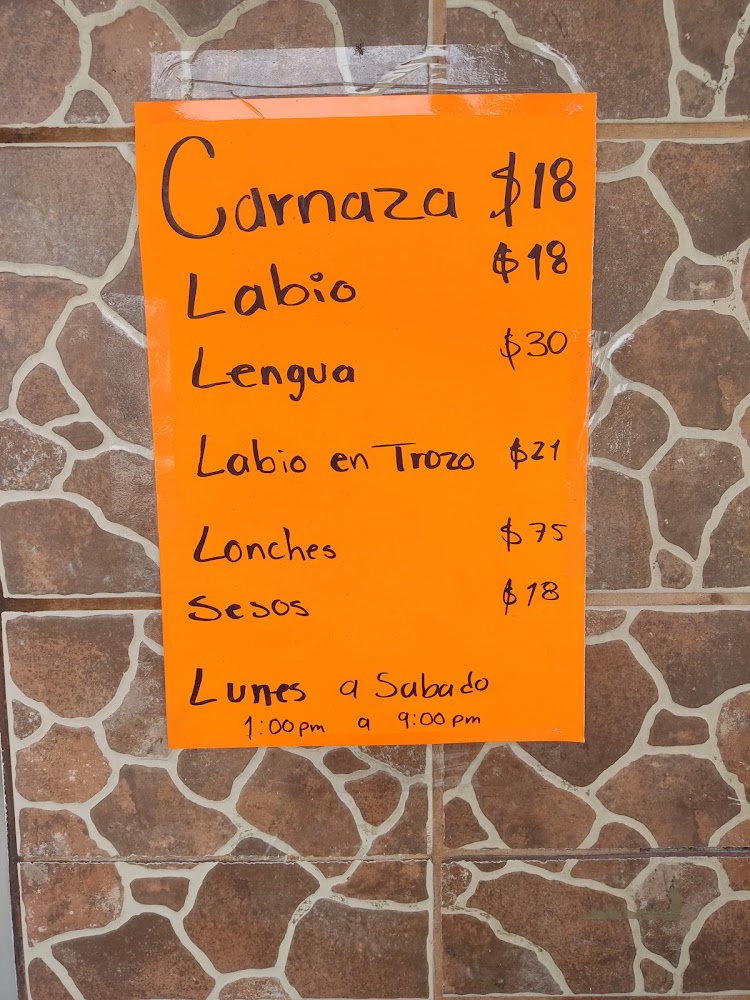 Carnaza $18
Labio $18
Lengua $30
Labio en Trozo $21
Lonches $75
Sesos $18
Lunes a Sabado
1:00pm a 9:00pm